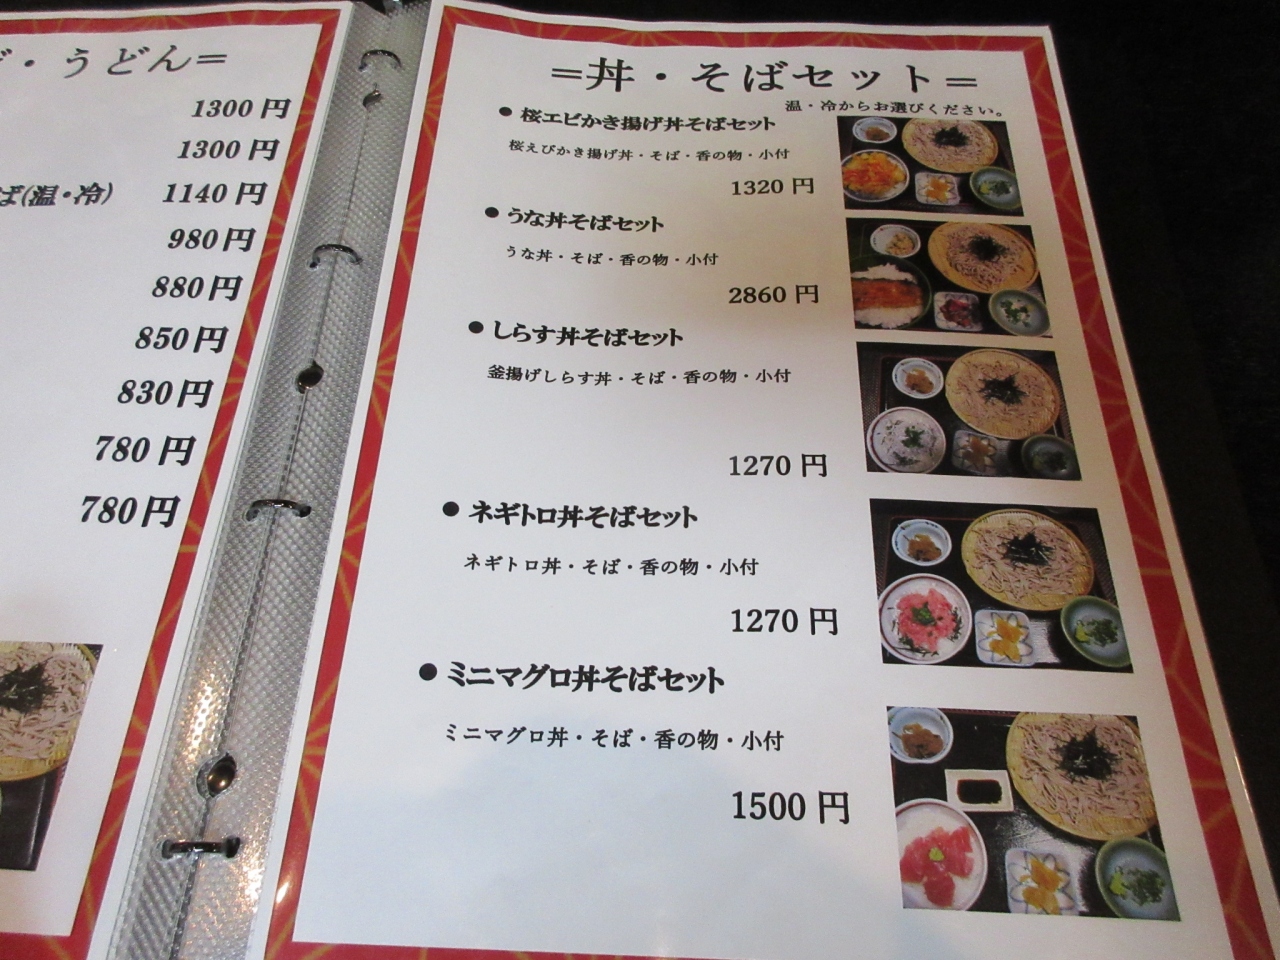 ・うどん＝
1300円
1300円
ば(温・冷) 1140円
980円
880円
850円
830円
780円
780円
＝丼・そばセット＝
温・冷からお選びください。
●桜エビかき揚げ丼そばセット
桜えびかき揚げ丼・そば・香の物・小付
1320円
●うな丼そばセット
うな丼・そば・香の物・小付
2860円
●しらす丼そばセット
釜揚げしらす丼・そば・香の物・小付
1270円
●ネギトロ丼そばセット
ネギトロ丼・そば・香の物・小付
1270円
●ミニマグロ丼そばセット
ミニマグロ丼・そば・香の物・小付
1500円